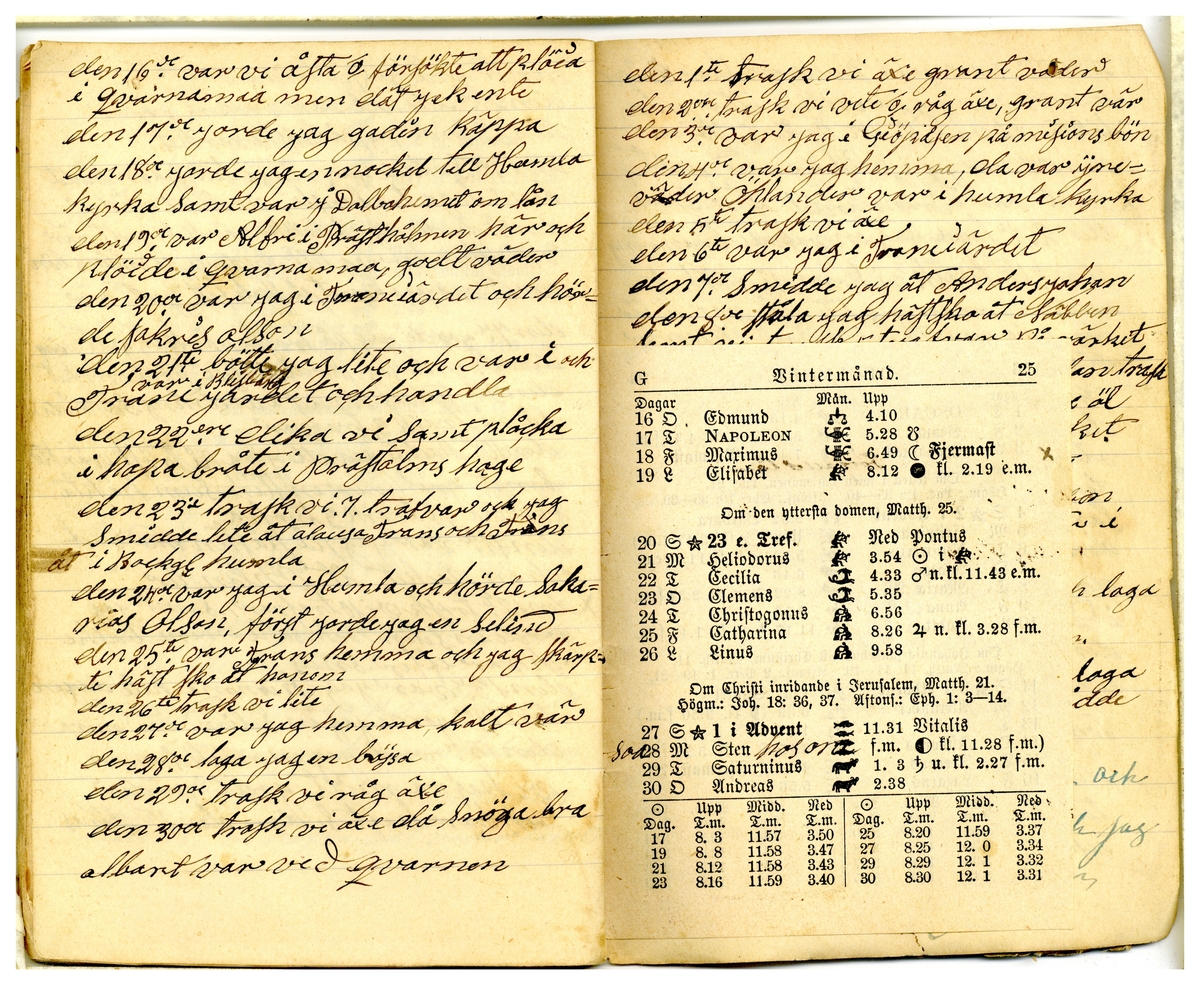 den 16de var vi åsta o försökte att plöia
i qvarnamaa men dät gek ente
den 17de gorde yag gadin käppa
den 18de gorde yag en nockel till Humla
kyrka samt var y Dalbohemit om lån
den 19de var Alfri i Prästhålmen här och
plöide i qvarnamaa, godt väder
den 20de var yag i Traneiärdet och hör=
de sakris olson
den 21te bötte yag lite och var i och
var i Blisbärg
Trane yärdet och handla
den 22dre elika vi samt plåcka
i hopa bråte i prästolms hage
den 23de trask vi 7. trafvar och yag
Smidde lite åt Frans och Frans
åt i Bockgl humla
den 24de var yag i Humla och hörde Saka=
rias Olson, först yorde yag en selind
den 25te var Frans hemma och yag skärp=
te häst sko åt honom
den 26te trask vi lite
den 27de var yag hemma, kalt vär
den 28de laga yag en böjsa
den 29de trask vi råg äxe
den 30de trask vi äxe då snöga bra
albart var ved qvarnen
den 1te trask vi äxe grant väder
den 2dre trask vi vite o råg äxe, grant vär
den 3de var yag i Giöpåsen på misions bön
den 4de var yag hemma, da var yne=
väder Öhlander var i humla kyrka
den 5te trask vi äxe
den 6te var yag i Traneiärdet
den 7de Smidde yag åt Anders yohan
den 8de ståla yag hästsko åt Näbben
lan trask
öl
G Vintermånad. 25
Dagar Mån. Upp
16 O Edmund 4.10
17 T NAPOLEON 5.28 ☋
18 F Maximus 6.49 ☾ Fjermast
19 L Elisabet 8.12 ● kl. 2.19 e.m.
Om den yttersta domen, Matth. 25.
20 S ☆ 23 e. Tref. Ned Pontus
21 M Heliodorus 3.54 ☉ i
22 T Cecilia 4.33 ♂ n. kl. 11.43 e.m.
23 O Clemens 5.35
24 T Christogonus 6.56
25 F Catharina 8.26 ♃ n. kl. 3.28 f.m.
26 L Linus 9.58
laga
Om Christi inridande i Jerusalem, Matth. 21.
Högm.: Joh. 18: 36, 37. Aftons.: Eph. 1: 3—14.
laga
dde
27 S ☆ 1 i Advent 11.31 Vitalis
28 M Sten f.m. ◐ kl. 11.28 f.m.)
29 T Saturninus 1. 3 ♄ u. kl. 2.27 f.m.
30 O Andreas 2.38
och
☉ Upp Midd. Ned ☉ Upp Midd. Ned
Dag. T.m. T.m. T.m. Dag. T.m. T.m. T.m.
17 8. 3 11.57 3.50 25 8.20 11.59 3.37
19 8. 8 11.58 3.47 27 8.25 12. 0 3.34
21 8.12 11.58 3.43 29 8.29 12. 1 3.32
23 8.16 11.59 3.40 30 8.30 12. 1 3.31
jag